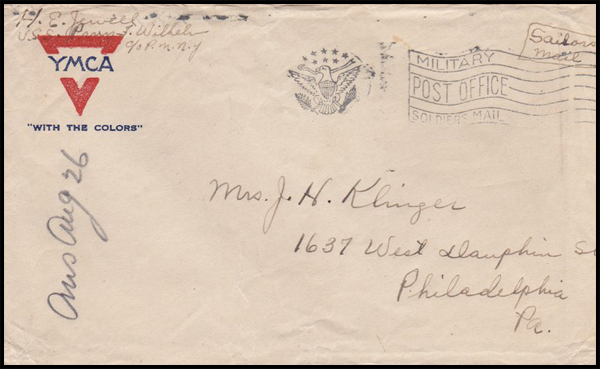 H. E. Jewell
U.S.S. Prinz F. Wilhelm
c/o P.M. N.Y
YMCA
"WITH THE COLORS"
Ans Aug 26
MILITARY
POST OFFICE
SOLDIERS MAIL
Sailors
Mail
Mrs. J. H. Klinger
1637 West Dauphin S
Philadelphia
Pa.